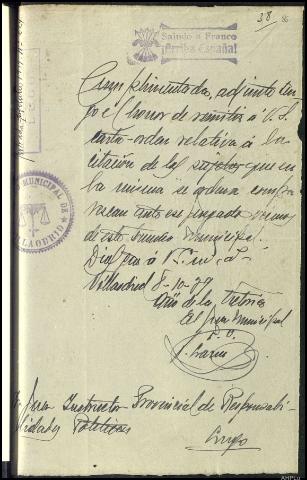 38
Saludo a Franco
¡Arriba España!
Cumplimentada, adjunto ten-
go el honor de remitir á V.S.
carta-orden relativa á la
citación de los sujetos que en
la misma se ordena compa-
rezcan ante ese Juzgado vecinos
de este término municipal.
Dios gue á V.S. m. a.
Villaodrid 8-10-39
Año de la Victoria
El Juez Municipal
P. O.
MUNICIPAL DE
VILLAODRID
Sr Juez Instructor Provincial de Responsabi-
lidades Politicas
Lugo